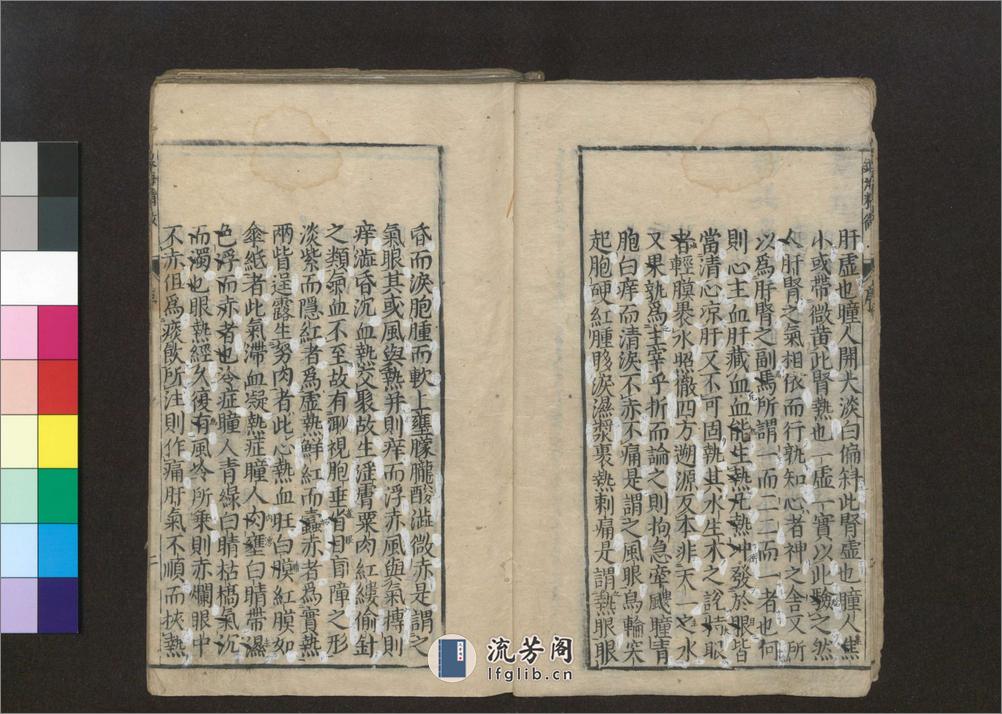 肝虛也瞳人開大淡白偏斜此腎虛也瞳人焦
小或帶微黃此腎熱也一虛一實以此驗之然
人肝腎之氣相依而行孰知心者神之舍又所
以爲肝腎之副焉所謂一而二二而一者也何
則心主血肝藏血血能生熱凡熱冲發於眼皆
當清心凉肝又不可固執其水生木之說 夫眼
者輕膜裹水照徹四方遡源反本非天一之水
又果孰爲主宰乎折而論之則拘急牽飇瞳青
胞白痒而清淚不赤不痛是謂之風眼烏輪突
起胞硬紅腫眵淚濕漿裹熱刺痛是謂熱眼眼
昏而淚胞腫而軟上壅朦朧酸澁微赤是謂之
氣眼其或風與熱并則痒而浮赤風與氣摶則
痒澁昏沉血熱交聚故生淫膚粟肉紅縷偷針
之類氣血不至故有 視胞垂 目盲障之形
淡紫而隱紅者爲虛熱鮮紅而 赤者爲實熱
兩眥逞露生努肉者此心熱血旺白膜紅膜如
傘紙者此氣滯血凝熱症瞳人肉壅白睛帶濕
色浮而赤者也冷症瞳人青綠白睛枯槁氣沉
而濁也眼熱經久復有風冷所乘則赤爛眼中
不赤但爲痰飲所注則作痛肝氣不順而挾熱
二
流芳阁
lfglib.cn